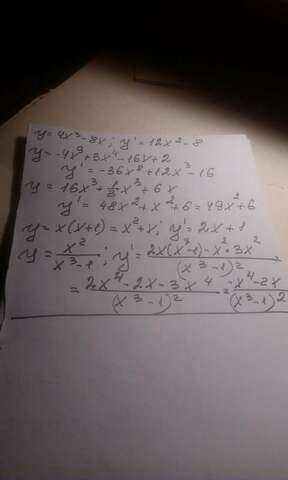 y=4x³-8x; y'=12x²-8
y=-4x⁹+3x⁴-16x+2
y'=-36x⁸+12x³-16
y=16x³+⅓x³+6x
y'=48x²+x²+6=49x²+6
y=x(x+1)=x²+x; y'=2x+1
y=x²/(x³-1); y'=(2x(x³-1)-x²·3x²)/(x³-1)²
=(2x⁴-2x-3x⁴)/(x³-1)²=(-x⁴-2x)/(x³-1)²